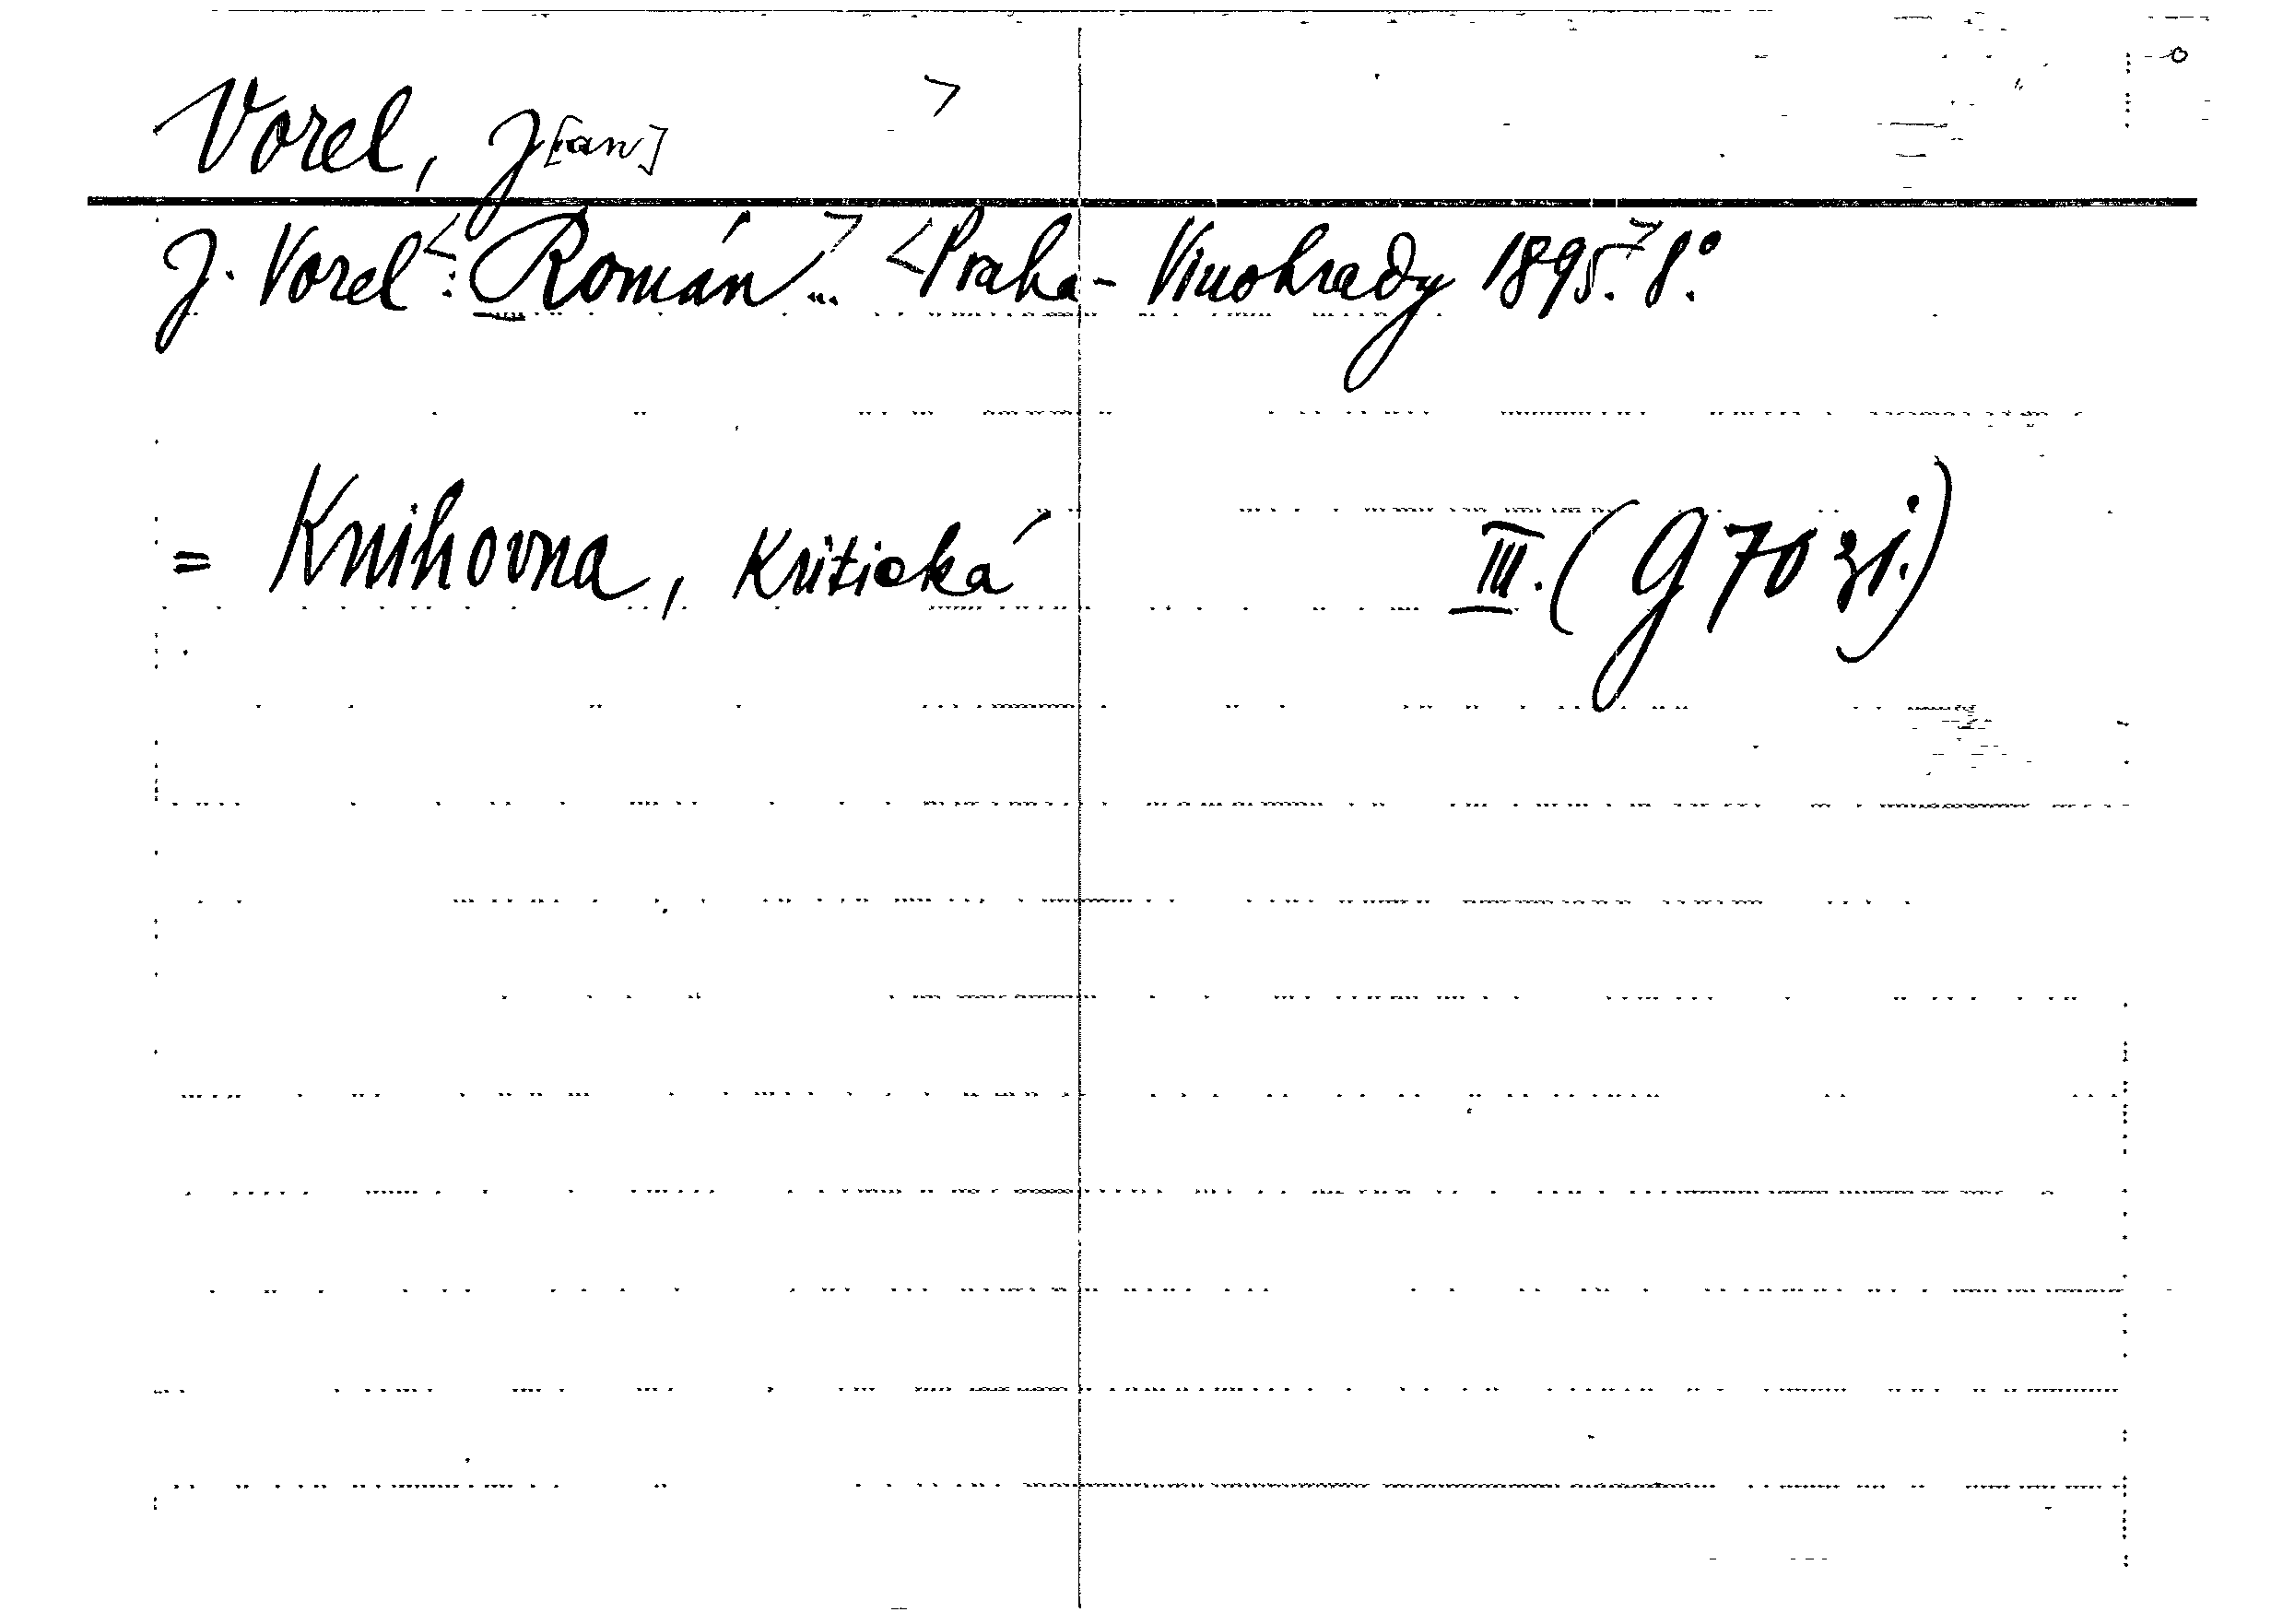 Vorel, J[an]
J. Vorel <: Román ...> <Praha - Vinohrady 1895.> 8.°
= Knihovna, Kritická III. (G 70 zj.)